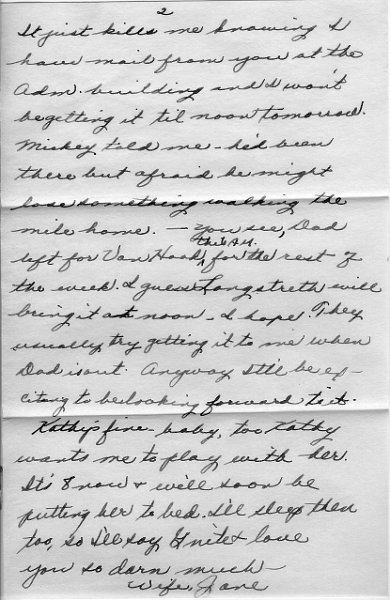 2
It just kills me knowing I
have mail from you at the
Adm. building and I won't
be getting it til noon tomorrow.
Mickey told me - he'd been
there but afraid he might
lose something walking the
mile home. - You see, Dad
this A.M.
left for Van Hook for the rest of
the week. I guess Longstreth will
bring it at noon - I hope. They
usually try getting it to me when
Dad is out. Anyway It'll be ex-
citing to be looking forward to it.
Kathy's fine - baby, too Kathy
wants me to play with her.
It's 8 now + we'll soon be
putting her to bed. I'll sleep then
too, so I'll say G'nite + love
you so darn much -
Wife, Jane